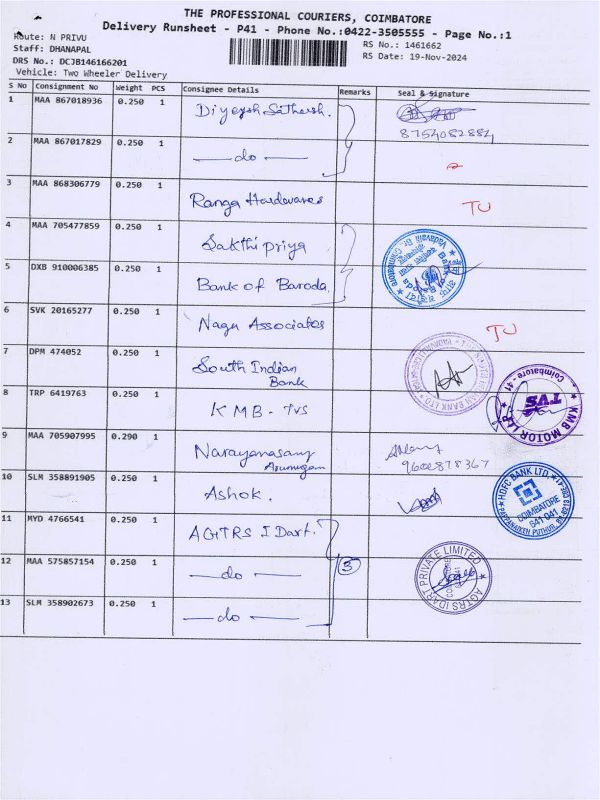 THE PROFESSIONAL COURIERS, COIMBATORE
Delivery Runsheet - P41 - Phone No.:0422-3505555 - Page No.:1
Route: N PRIVU
Staff: DHANAPAL
DRS No.: DCJB146166201
Vehicle: Two Wheeler Delivery
RS No.: 1461662
RS Date: 19-Nov-2024
S No Consignment No Weight PCS Consignee Details Remarks Seal & Signature
1 MAA 867018936 0.250 1 Diyeesh Sathersh.
8754082884
2 MAA 867017829 0.250 1 —do—
3 MAA 868306779 0.250 1 Ranga Hardwares TU
4 MAA 705477859 0.250 1 Sakthipriya
5 DXB 910006385 0.250 1 Bank of Baroda.
6 SVK 20165277 0.250 1 Naga Associates TU
7 DPM 474052 0.250 1 South Indian
Bank
8 TRP 6419763 0.250 1 KMB - TVS
Coimbatore - 41
TVS
KMB MOTOR LLP
9 MAA 705907995 0.290 1 Narayanasamy
Arumugam
9600878367
10 SLM 358891905 0.250 1 Ashok.
HDFC BANK LTD.
COIMBATORE
641 041
11 MYD 4766541 0.250 1 AGTRS I Dart.
12 MAA 575857154 0.250 1 —do— 3
AGTRS IDART PRIVATE LIMITED
13 SLM 358902673 0.250 1 —do—